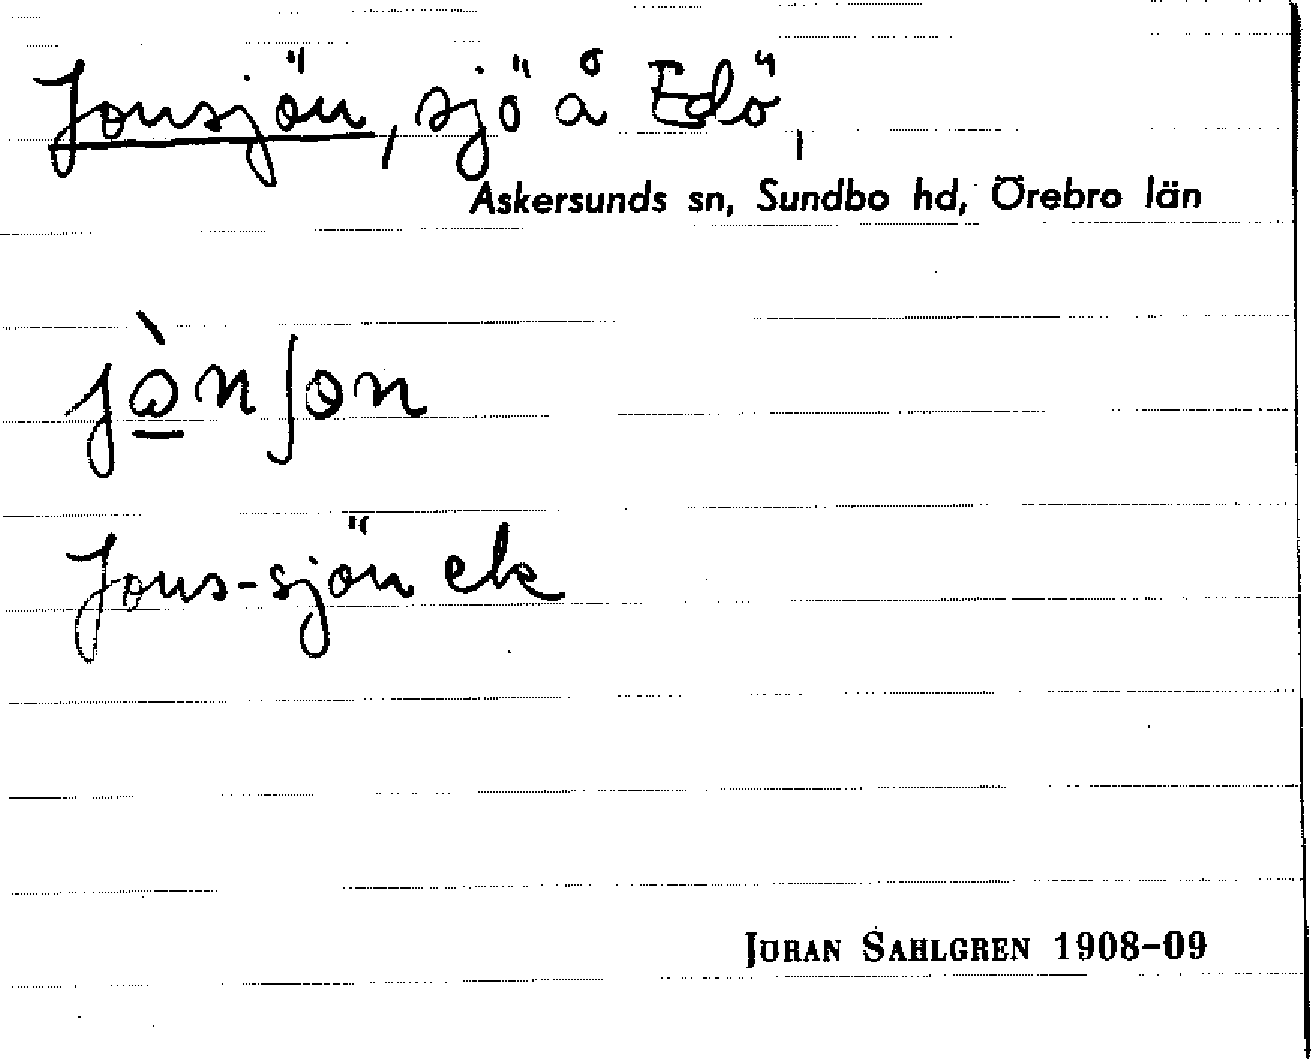 Jonsjön, sjö å Edö,
Askersunds sn, Sundbo hd, Örebro län
Jons-sjön ek
JÖRAN SAHLGREN 1908–09